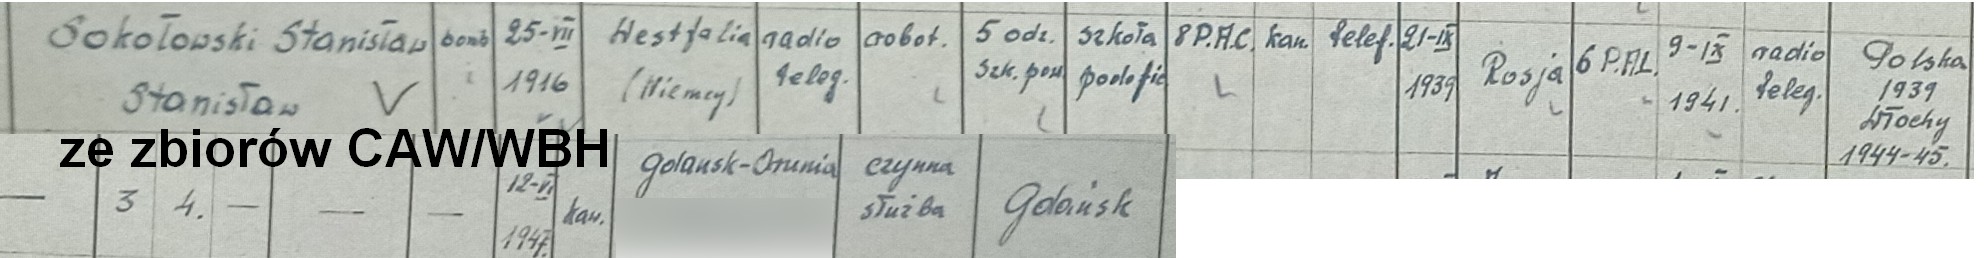 Sokołowski Stanisław
Stanisław V
bomb
25-VII
1916
Westfalia
(Niemcy)
radio
teleg.
robot.
5 odz.
Szk. pow
szkoła
podofic
8 P.A.C.
kan.
telef.
21-IX
1939
Rosja
6 P.A.L.
9-IX
1941.
radio
teleg.
Polska
1939
Włochy
1944-45.
ze zbiorów CAW/WBH
— 3 4. — — —
12-VI
1947.
kan.
Gdańsk-Orunia
czynna
służba
Gdańsk